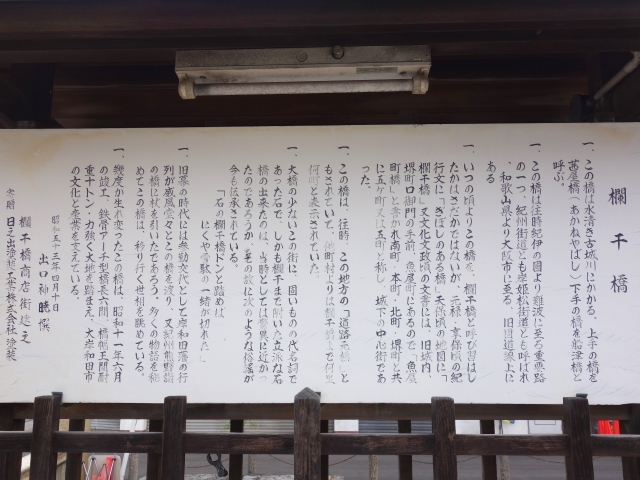 欄干橋
一、この橋は水清き古城川にかかる、上手の橋を
茜屋橋(あかねやばし)下手の橋を船津橋と
呼ぶ。
一、この橋は往時紀伊の國より難波に至る重要路
の一つ、紀州街道とも岸姫松街道とも呼ばれ
、和歌山県より大阪市に至る、旧国道線上に
ある
一、いつの頃よりこの橋を、欄干橋と呼び習はし
たかはさだかではないが、元禄、享保頃の紀
行文に「ぎぼしのある橋、天保頃の地図に「
欄干橋」又文化文政頃の文書には、旧城内、
堺町口御門の手前、魚屋町にあるので「魚屋
町橋」と書かれ南町、本町、北町、堺町と共
に五ヶ町又は五町と称し、城下の中心街であ
った。
一、この橋は、往時、この地方の「道路元標」と
もされていて、他町村よりは欄干橋まで何里
何町と表示されていた。
一、大橋の少ないこの街に、固いものの代名詞で
あった石で、しかも欄干まで附いた立派な石
橋の出来たのは、当時としては驚異に近かっ
たのであろうか、里の故に次のような俗謡が
今も伝承されている。
「石の欄干橋ドンと踏めば
にくや雪駄の一緒が切れた」
一、旧幕の時代には参勤交代として岸和田藩の行
列が威風堂々とこの橋を渡り、又紀州熊野詣
の橋に杖を引いたであろう。多くの物語を秘
めてこの橋は、移り行く世相を眺めている。
一、幾度か生れ変ったこの橋は、昭和十一年六月
の竣工、鉄骨アーチ型橋長六間、橋幅五間耐
重十トン・力強く大地を踏まえ、大岸和田市
の文化と産業を支えている。
昭和五十三年四月十日
出口神暁 撰
欄干橋商店街 建之
寄附 日之出塗装工芸株式会社 塗装